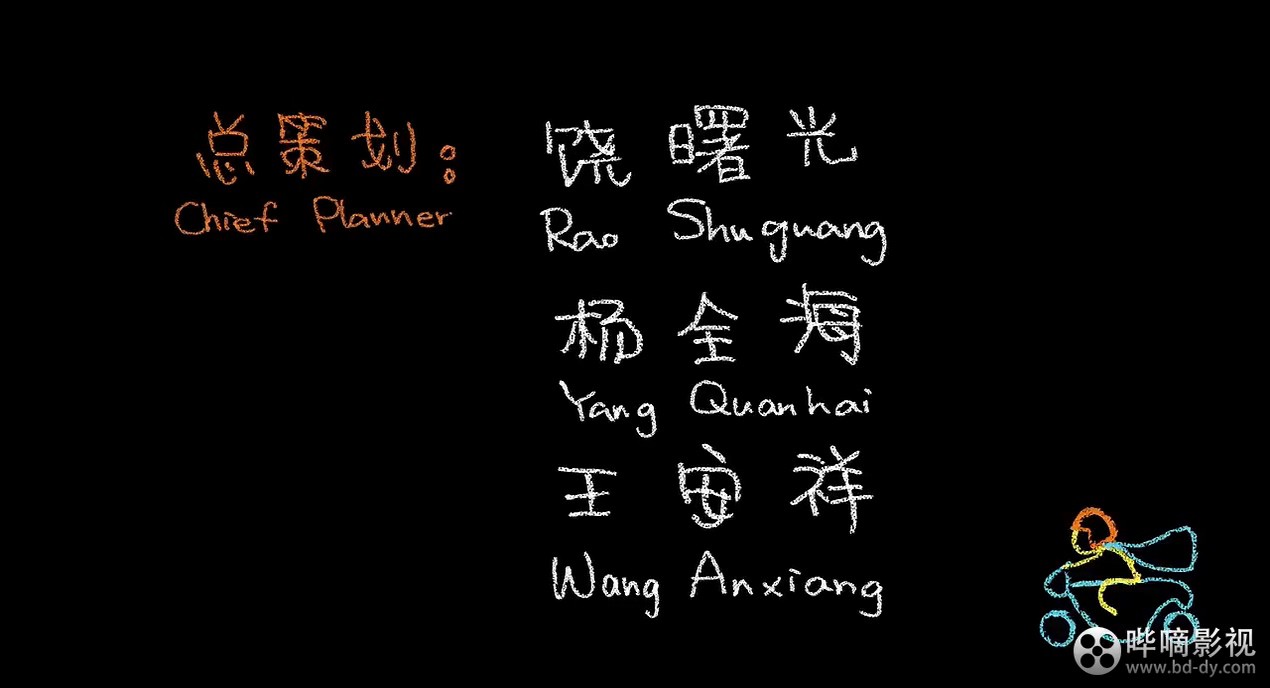 总策划：
Chief Planner
饶曙光
Rao Shuguang
杨全海
Yang Quanhai
王安祥
Wang Anxiang
哔嘀影视
www.bd-dy.com